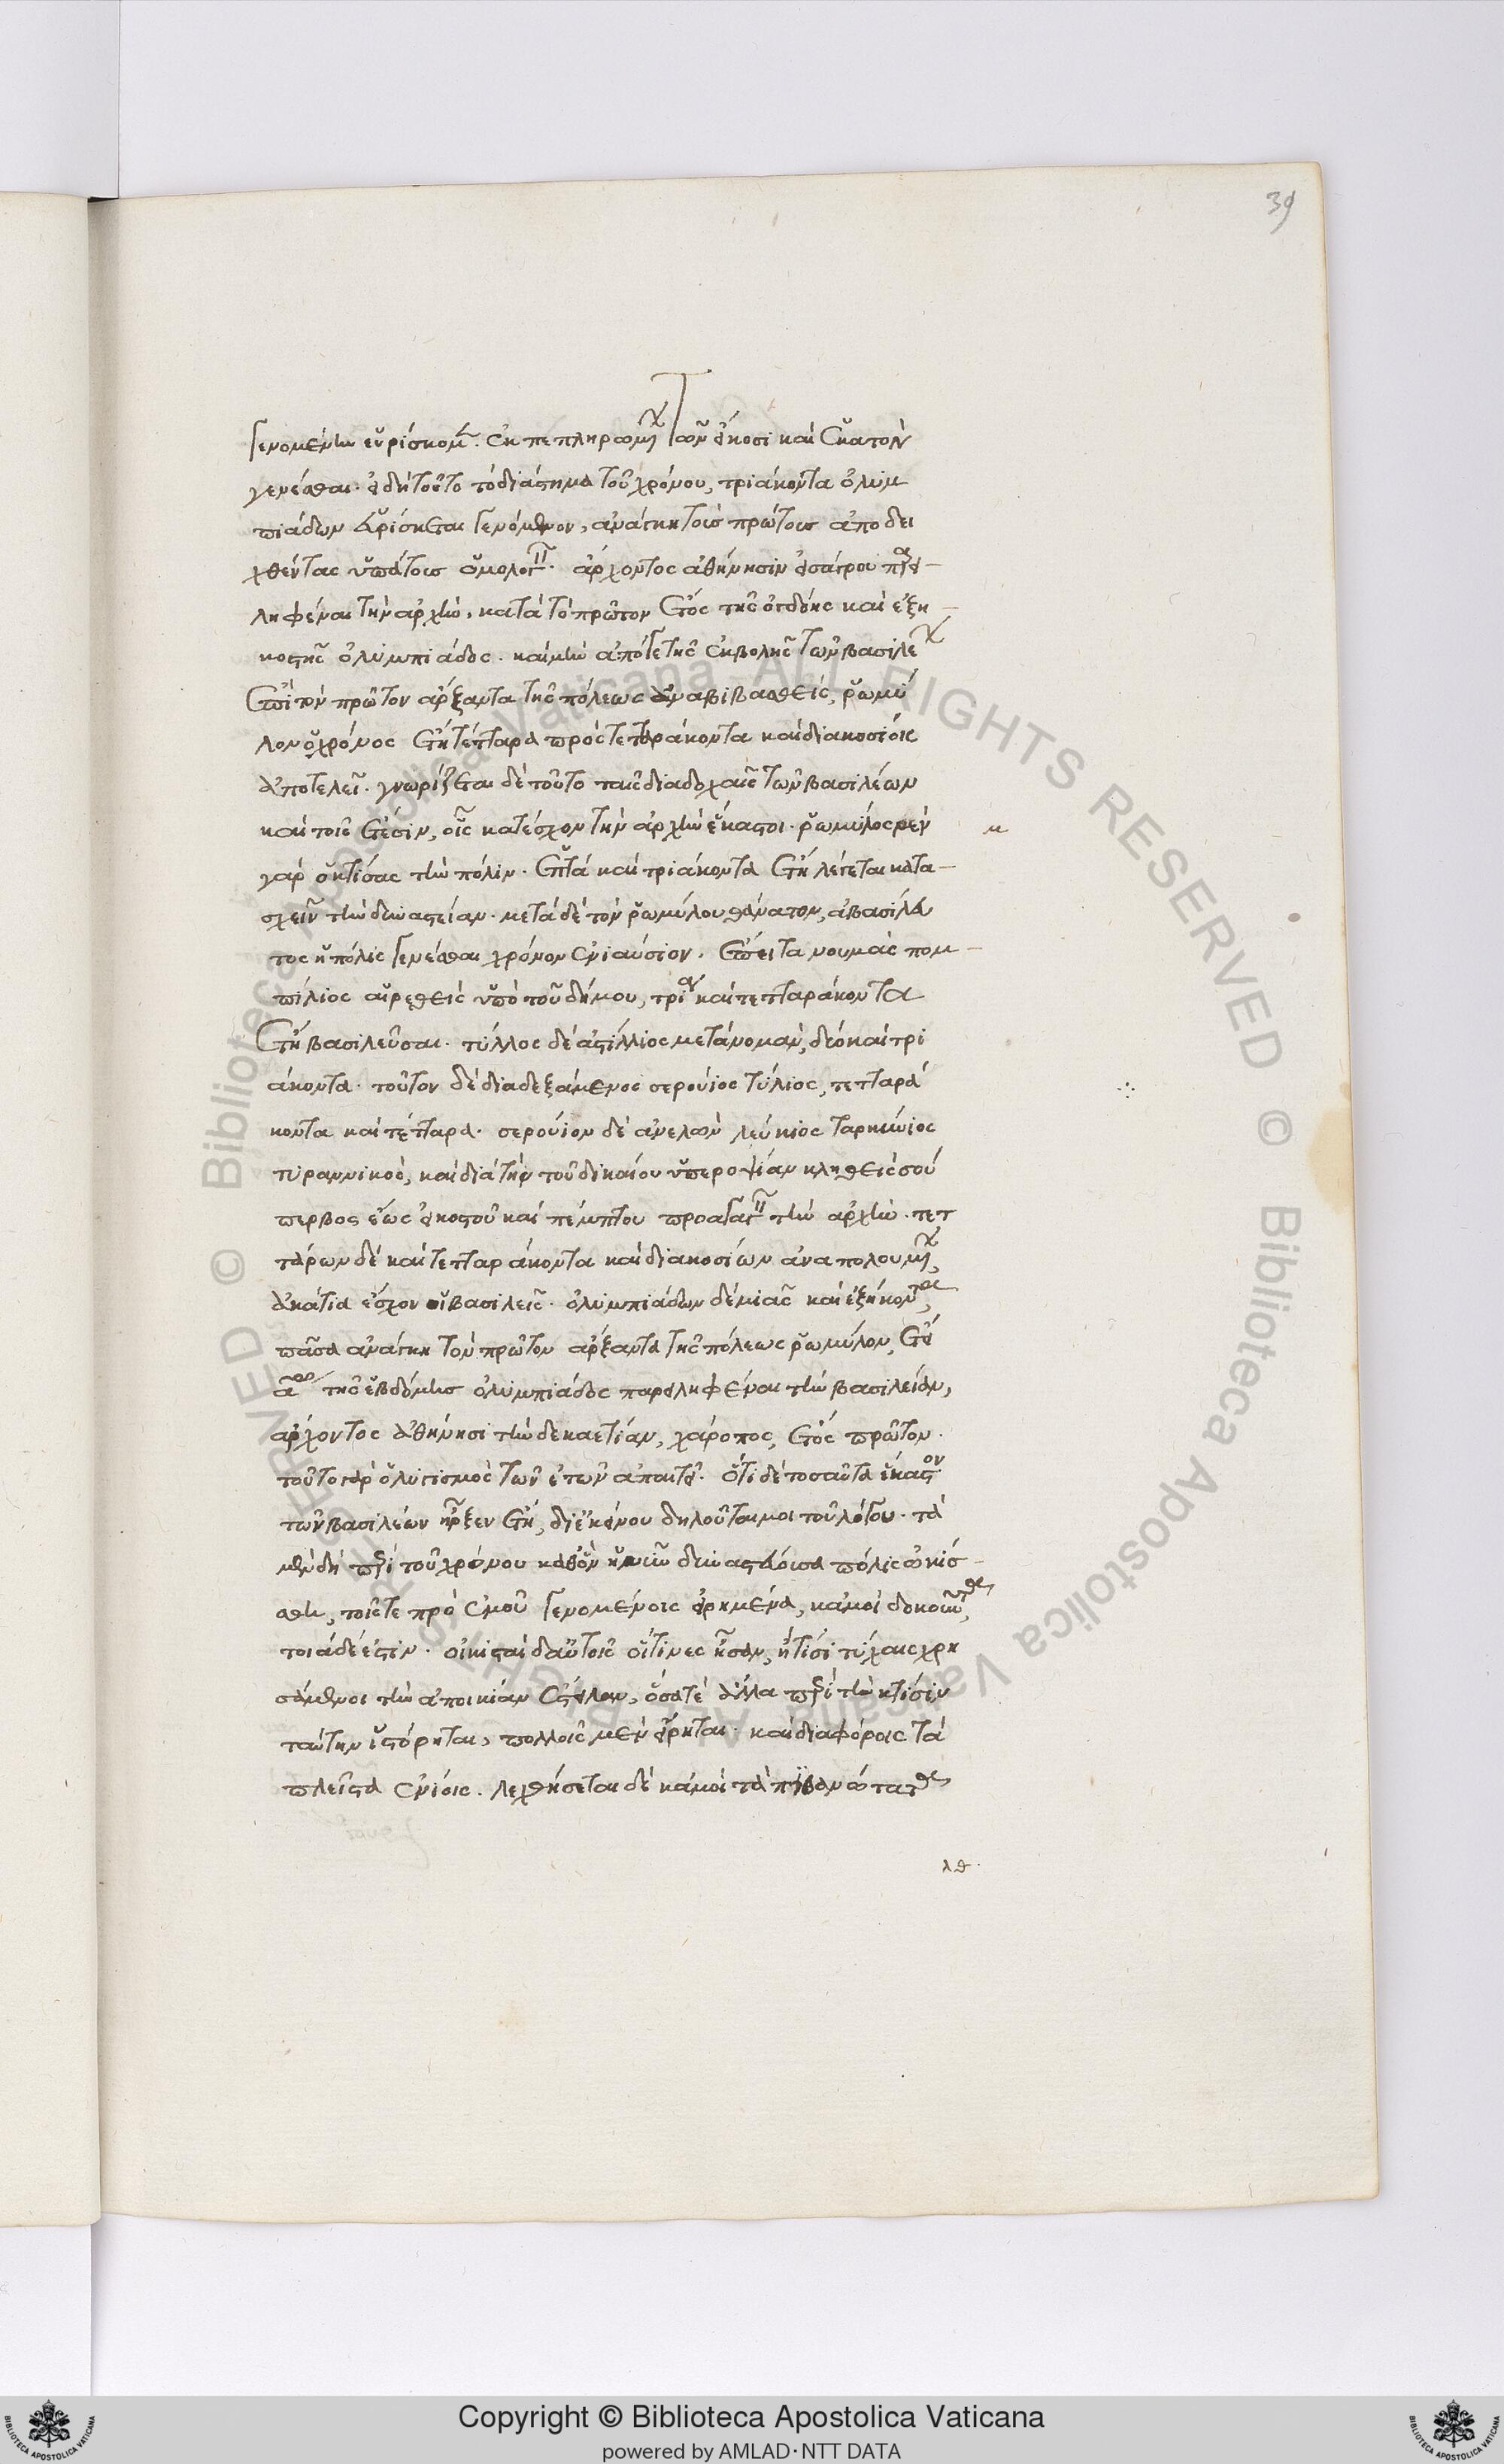 39
γενομένην εὑρίσκομεν. ἐκπεπληρωμένων τῶν εἴκοσι καὶ ἑκατὸν
γενέσθαι. εἰ δὴ τοῦτο τὸ διάστημα τοῦ χρόνου, τριάκοντα ὀλυμ
πιάδων εὑρίσκεται γενόμενον, ἀνάγκη τοῖς πρώτοις ἀποδει
χθέντας ὑπάτοις ὁμολογεῖν. ἄρχοντος ἀθήνησιν ἰσαγρου παρει-
ληφέναι τὴν ἀρχὴν, κατὰ τὸ πρῶτον ἔτος τῆς ὀγδόης καὶ ἑξη-
κοστῆς ὀλυμπιάδος. καὶ μὴν ἀπό γε τῆς ἐκβολῆς τῶν βασιλέων
ἐπὶ τὸν πρῶτον ἄρξαντα τῆς πόλεως ἀναβιβασθεὶς, ῥωμύ
λον ὁ χρόνος ἔτη τέτταρα πρὸς τετταράκοντα καὶ διακοσίοις
ἀποτελεῖ. γνωρίζεται δὲ τοῦτο ταῖς διαδοχαῖς τῶν βασιλέων
καὶ τοῖς ἔτεσιν, οἷς κατέσχον τὴν ἀρχὴν ἕκαστοι. ῥωμύλος μὲν
γὰρ ὁ κτίσας τὴν πόλιν. ἑπτὰ καὶ τριάκοντα ἔτη λέγεται κατα-
σχεῖν τὴν δυναστείαν. μετὰ δὲ τὸν ῥωμύλου θάνατον, ἀβασίλευ
τος ἡ πόλις γενέσθαι χρόνον ἐνιαύσιον. ἔπειτα νουμὰς πομ-
πίλιος αἱρεθεὶς ὑπὸ τοῦ δήμου, τρία καὶ τετταράκοντα
ἔτη βασιλεῦσαι. τύλλος δὲ ὁστίλλιος μετὰ νομὰν, δύο καὶ τρι
άκοντα. τοῦτον δὲ διαδεξάμενος σερούιος τύλιος, τετταρά
κοντα καὶ τέτταρα. σερούιον δὲ ἀνελὼν λεύκιος ταρκύνιος
τυραννικὸς, καὶ διὰ τὴν τοῦ δικαίου ὑπεροψίαν κληθεὶς σού
περβος ἕως εἰκοστοῦ καὶ πέμπτου προαγαγεῖν τὴν ἀρχὴν. τετ
τάρων δὲ καὶ τετταράκοντα καὶ διακοσίων ἀναπολουμένων,
ἃ κατὰ ἔσχον οἱ βασιλεῖς. ὀλυμπιάδων δὲ μιᾶς καὶ ἑξήκοντα,
πᾶσα ἀνάγκη τὸν πρῶτον ἄρξαντα τῆς πόλεως ῥωμύλον, ἔτει
αῳ τῆς ἑβδόμης ὀλυμπιάδος παρειληφέναι τὴν βασιλείαν,
ἄρχοντος ἀθήνησι τὴν δεκαετίαν, χάροπος, ἔτος πρῶτον.
τοῦτο γὰρ ὁ λογισμὸς τῶν ἐτῶν ἀπαιτεῖ. ὅτι δὲ τοσαῦτα ἕκαστον
τῶν βασιλέων ἦρξεν ἔτη, δι' ἐκείνου δηλοῦταί μοι τοῦ λόγου. τὰ
μὲν δὴ περὶ τοῦ χρόνου καθ' ὃν ἡ νῦν δυναστεύουσα πόλις ᾠκίσ-
θη, τοῖς τε πρὸ ἐμοῦ γενομένοις εἰρημένα, κἀμοὶ δοκοῦντα,
τοιάδέ ἐστιν. οἰκισταὶ δ' αὐτοῖς οἵτινες ἦσαν, ἢ τίσι τύχαις χρη
σάμενοι τὴν ἀποικίαν ἔστειλαν, ὅσα τε ἄλλα περὶ τὴν κτίσιν
ταύτην ἱστόρηται, πολλοῖς μὲν εἴρηται. καὶ διαφόροις τὰ
πλεῖστα ἐνίοις. λεχθήσεται δὲ κἀμοὶ τὰ πιθανώτατα
λθ.
© Biblioteca Apostolica Vaticana ALL RIGHTS RESERVED © Biblioteca Apostolica Vaticana ALL RIGHTS RESERVED
Copyright © Biblioteca Apostolica Vaticana
powered by AMLAD·NTT DATA
BIBLIOTECA APOSTOLICA VATICANA
BIBLIOTECA APOSTOLICA VATICANA